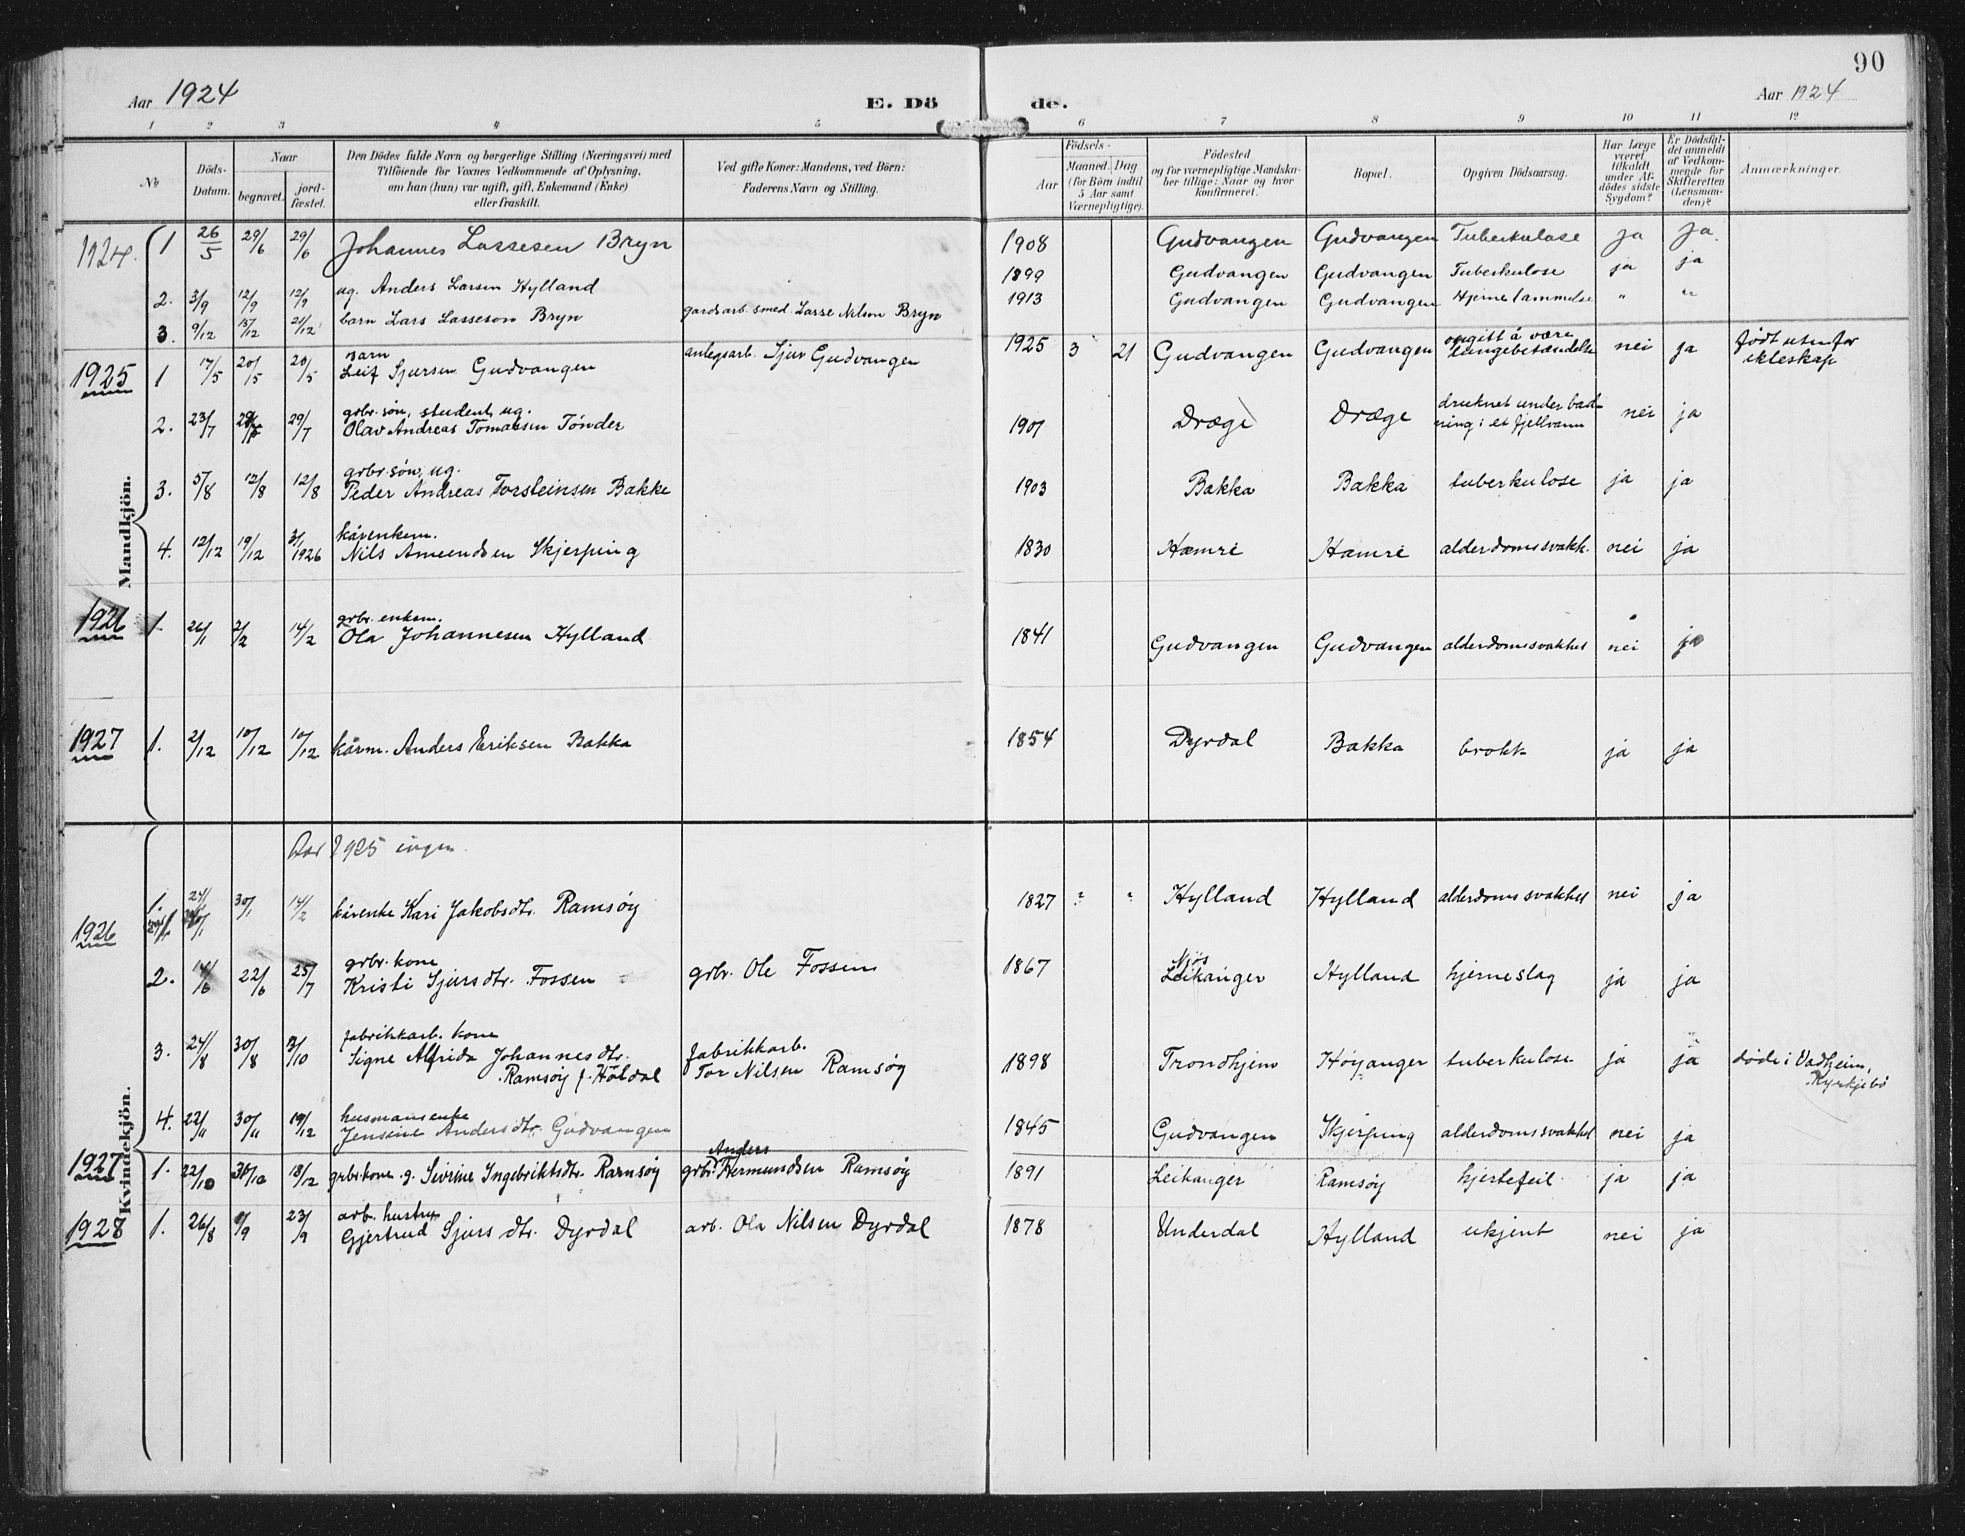 90
Aar 1924
E. Dö
de.
Aar 1924
1 2 3 4 5 6 7 8 9 10 11 12
No
Döds-
Datum.
Naar
begravet.
jord-
fæstet.
Den Dödes fulde Navn og borgerlige Stilling (Næringsvei) med
Tilföiende for Voxnes Vedkommende af Oplysning,
om han (hun) var ugift, gift, Enkemand (Enke)
eller fraskilt.
Ved gifte Koner: Mandens, ved Börn:
Faderens Navn og Stilling.
Födsels-
Aar
Maaned. Dag
(for Börn indtil
5 Aar samt
Værnepligtige).
Födested
og for værnepligtige Mandska-
ber tillige: Naar og hvor
konfirmeret.
Bopæl.
Opgiven Dödsaarsag.
Har Læge
været
tilkaldt
under Af-
dödes sidste
Sygdom?
Er Dödsfal-
det anmeldt
af Vedkom-
mende for
Skifteretten
(Lensman-
den)?
Anmærkninger.
Mandkjön.
1924. 1 26/5 29/6 29/6 Johannes Lassesen Bryn 1908 Gudvangen Gudvangen Tuberkulose ja ja.
2. 3/9 12/9 12/9 ug. Anders Larsen Hylland 1899 Gudvangen Gudvangen Tuberkulose ja ja
3. 9/12 15/12 21/12 barn Lars Lasseson Bryn gardsarb. smed. Lasse Nilson Bryn 1913 Gudvangen Gudvangen Hjernelammelse " "
1925 1 17/5 20/5 20/5 barn
Leif Sjursen Gudvangen anlegsarb. Sjur Gudvangen 1925 3 21 Gudvangen Gudvangen opgitt å være
lungebetændelse nei ja født utenfor
ekteskap
2. 23/7 29/7 grbr. søn, student, ug.
Olav Andreas Tomassen Tønder 1901 Dræge Dræge druknet under bad-
ning i et fjellvann nei ja
3. 5/8 12/8 12/8 grbr. søn, ug.
Peder Andreas Torsteinsen Bakke 1903 Bakka Bakka tuberkulose ja ja
4. 12/12 19/12 3/1 1926 kårenkem.
Nils Amundsen Skjerping 1830 Hamre Hamre alderdomssvakh. nei ja
1926 1 26/1 2/2 14/2 grbr. enkem.
Ola Johannesen Hylland 1841 Gudvangen Gudvangen alderdomssvakhet nei ja
1927 1. 2/12 10/12 10/12 kårm. Anders Eriksen Bakka 1854 Dyrdal Bakka brokk ja ja
Kvindekjön.
Aar 1925 ingen
1926 1. 24/1 30/1 14/2 kårenke Kari Jakobsdtr. Ramsøy 1827 " " Hylland Hylland alderdomssvakhet nei ja
2. 14/6 22/6 25/7 grbr. kone
Kristi Sjursdtr. Fossen grbr. Ole Fossen 1867 Njøs
Leikanger Hylland hjerneslag ja ja
3. 24/8 30/8 3/10 fabrikkarb. kone
Signe Alfrida Johannesdtr.
Ramsøy f. Høldal fabrikkarb.
Tor Nilsen Ramsøy 1898 Trondhjem Høyanger tuberkulose ja ja døde i Vadheim,
Kyrkjebø
4. 22/11 30/11 19/12 husmansenke
Jensine Andersdtr. Gudvangen 1845 Gudvangen Skjerping alderdomssvakhet nei ja
1927 1. 22/10 30/10 18/12 grbr. kone g. Sivrine Ingebriktsdtr. Ramsøy grbr. Anders Fermundsen Ramsøy 1891 Leikanger Ramsøy hjertefeil ja ja
1928 1. 26/8 /9 23/9 arb. hustru
Gjertrud Sjursdtr. Dyrdal arb. Ola Nilsen Dyrdal 1878 Underdal Hylland ukjent nei ja